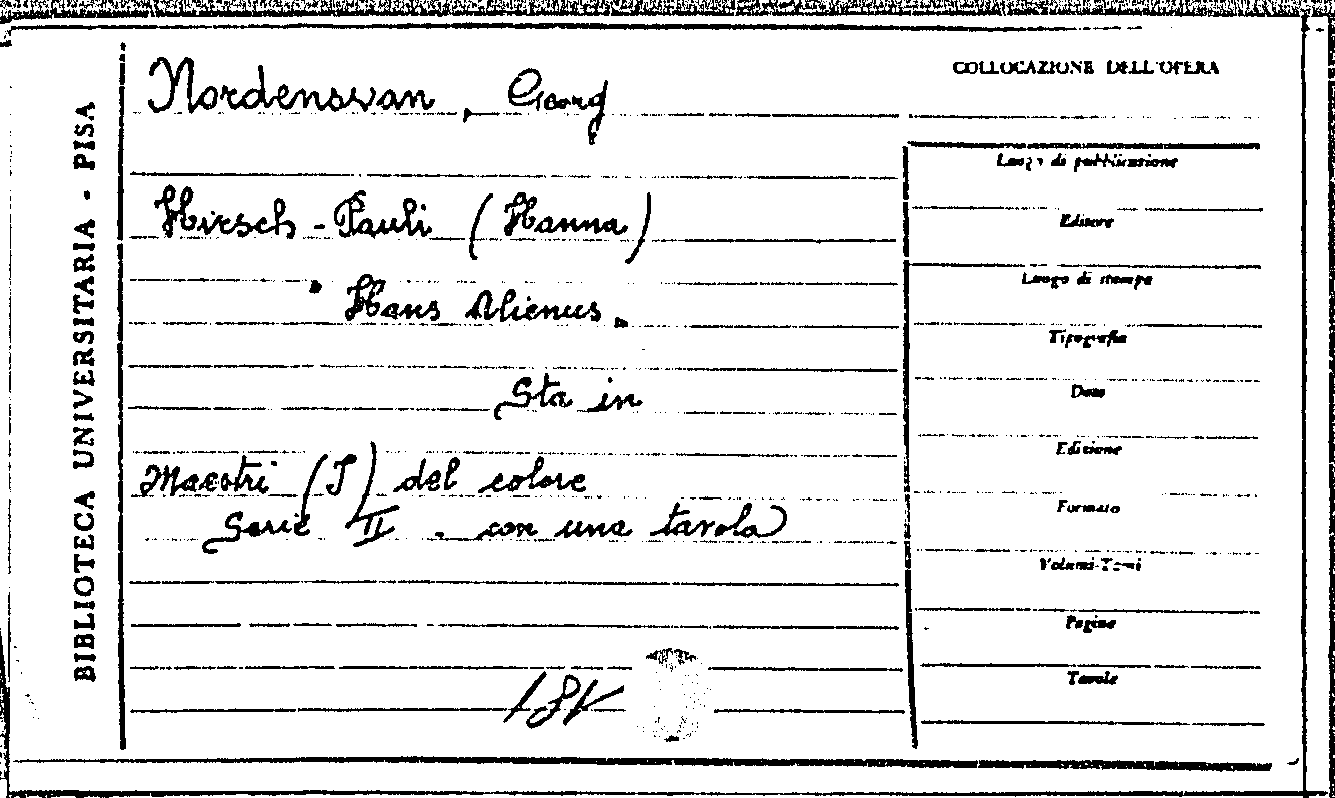 BIBLIOTECA UNIVERSITARIA - PISA
Nordensvan, Georg
Hirsch-Pauli (Hanna)
"Hans Alienus"
Sta in
Maestri (I) del colore
Serie II. con una tavola
COLLOCAZIONE DELL'OPERA
Luogo di pubblicazione
Editore
Luogo di stampa
Tipografia
Data
Edizione
Formato
Volumi-Tomi
Pagine
Tavole